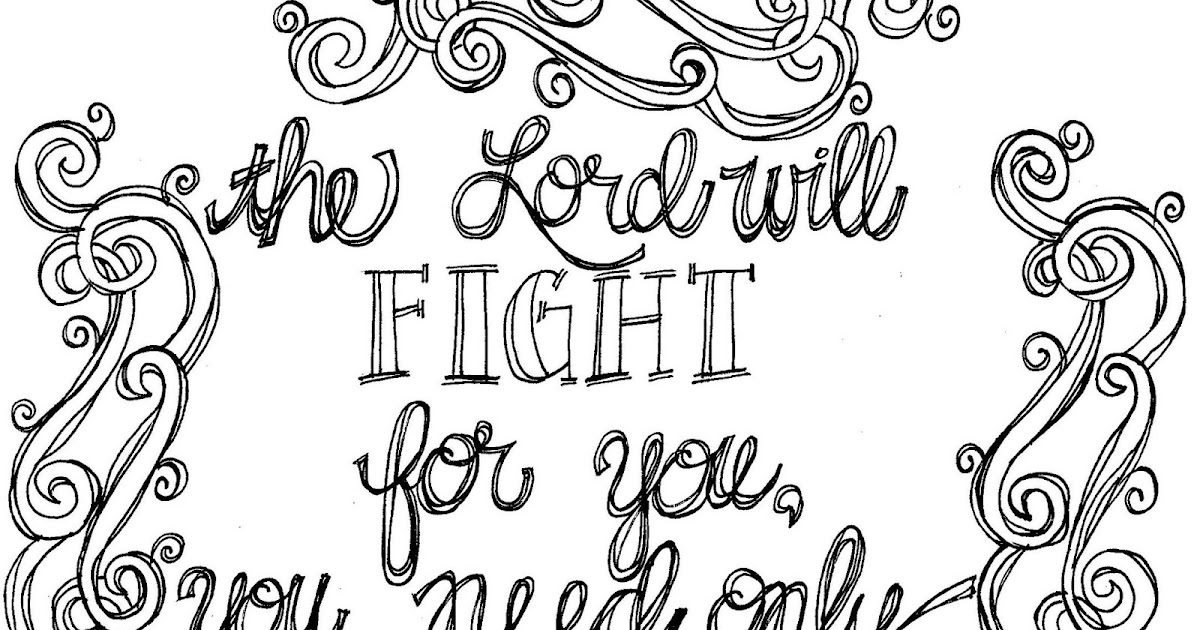 the Lord will
FIGHT
for you,
you need only